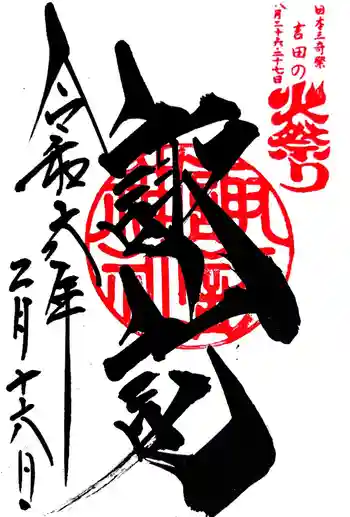 日本三奇祭
吉田の
火祭り
八月二十六・二十七日
諏訪宮
令和六年
二月十六日